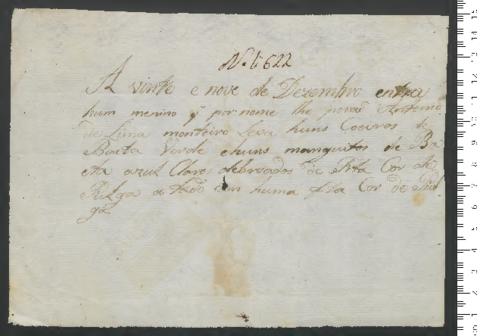 Nº 1622
A vinte e nove de Dezembro entra
hum menino q por nome lhe poraõ Antonio
de Luna monteiro Leva huns Coeiros de
Baeta Verde e huns manguitos de Ba
eta azul Claros debroados de fita Cor de
atado com huma fita Cor de